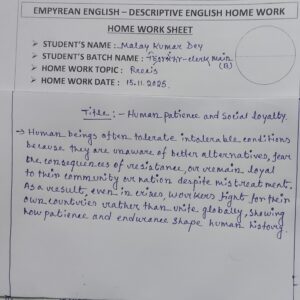 EMPYREAN ENGLISH – DESCRIPTIVE ENGLISH HOME WORK
HOME WORK SHEET
➢ STUDENT'S NAME : Malay Kumar Dey
➢ STUDENT'S BATCH NAME : -clerk main (B)
➢ HOME WORK TOPIC : Precis
➢ HOME WORK DATE : 15.11.2025.
Title :- Human patience and social loyalty.
→ Human beings often tolerate intolerable conditions
because they are unaware of better alternatives, fear
the consequences of resistance, or remain loyal
to their community or nation despite mistreatment.
As a result, even in crises, workers fight for their
own countries rather than unite globally, showing
how patience and endurance shape human history.